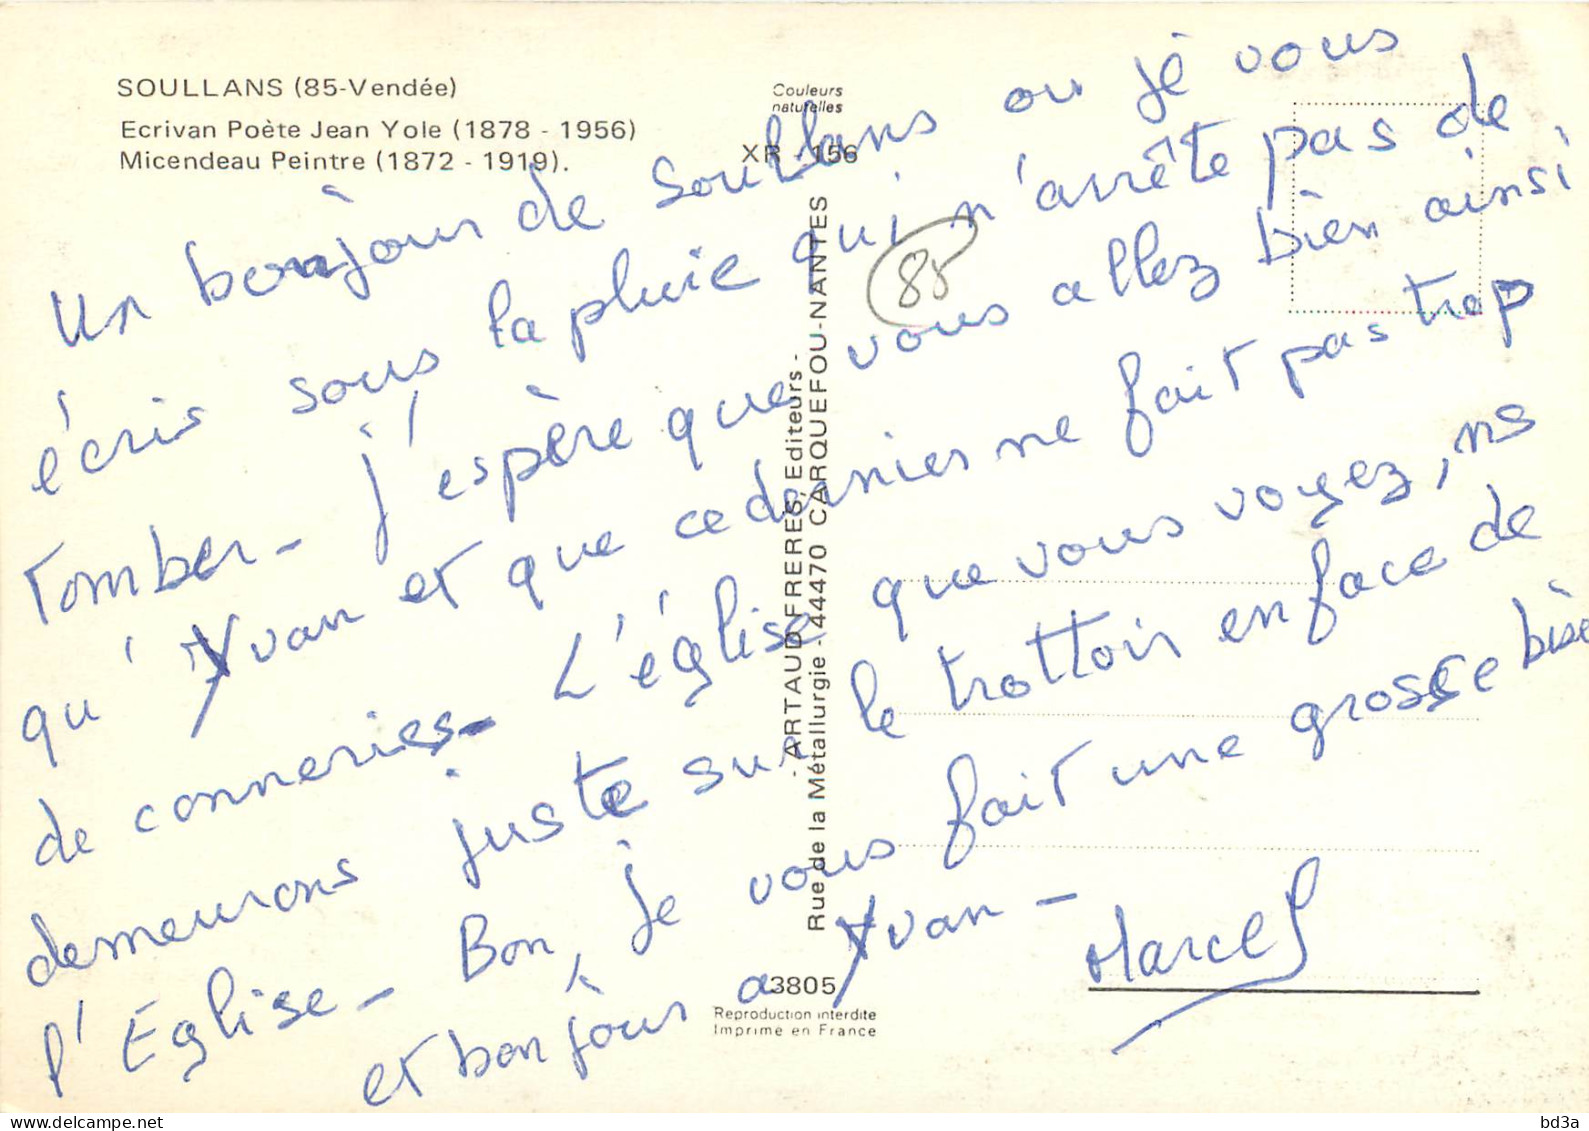 SOULLANS (85-Vendée)
Ecrivan Poète Jean Yole (1878 - 1956)
Micendeau Peintre (1872 - 1919).
Couleurs
naturelles
XR 156
85
Un bonjour de Soullans ou je vous
écris sous la pluie qui n'arrête pas de
tomber - j'espère que vous allez bien ainsi
qu'Yvan et que ce dernier ne fait pas trop
de conneries - L'église que vous voyez, ns
demeurons juste sur le trottoir en face de
l'Eglise - Bon, je vous fait une grosse bise
et bonjour a Yvan -
Marcel
- ARTAUD FRERES, Editeurs -
Rue de la Métallurgie - 44470 CARQUEFOU-NANTES
3805
Reproduction interdite
Imprimé en France
bd3a